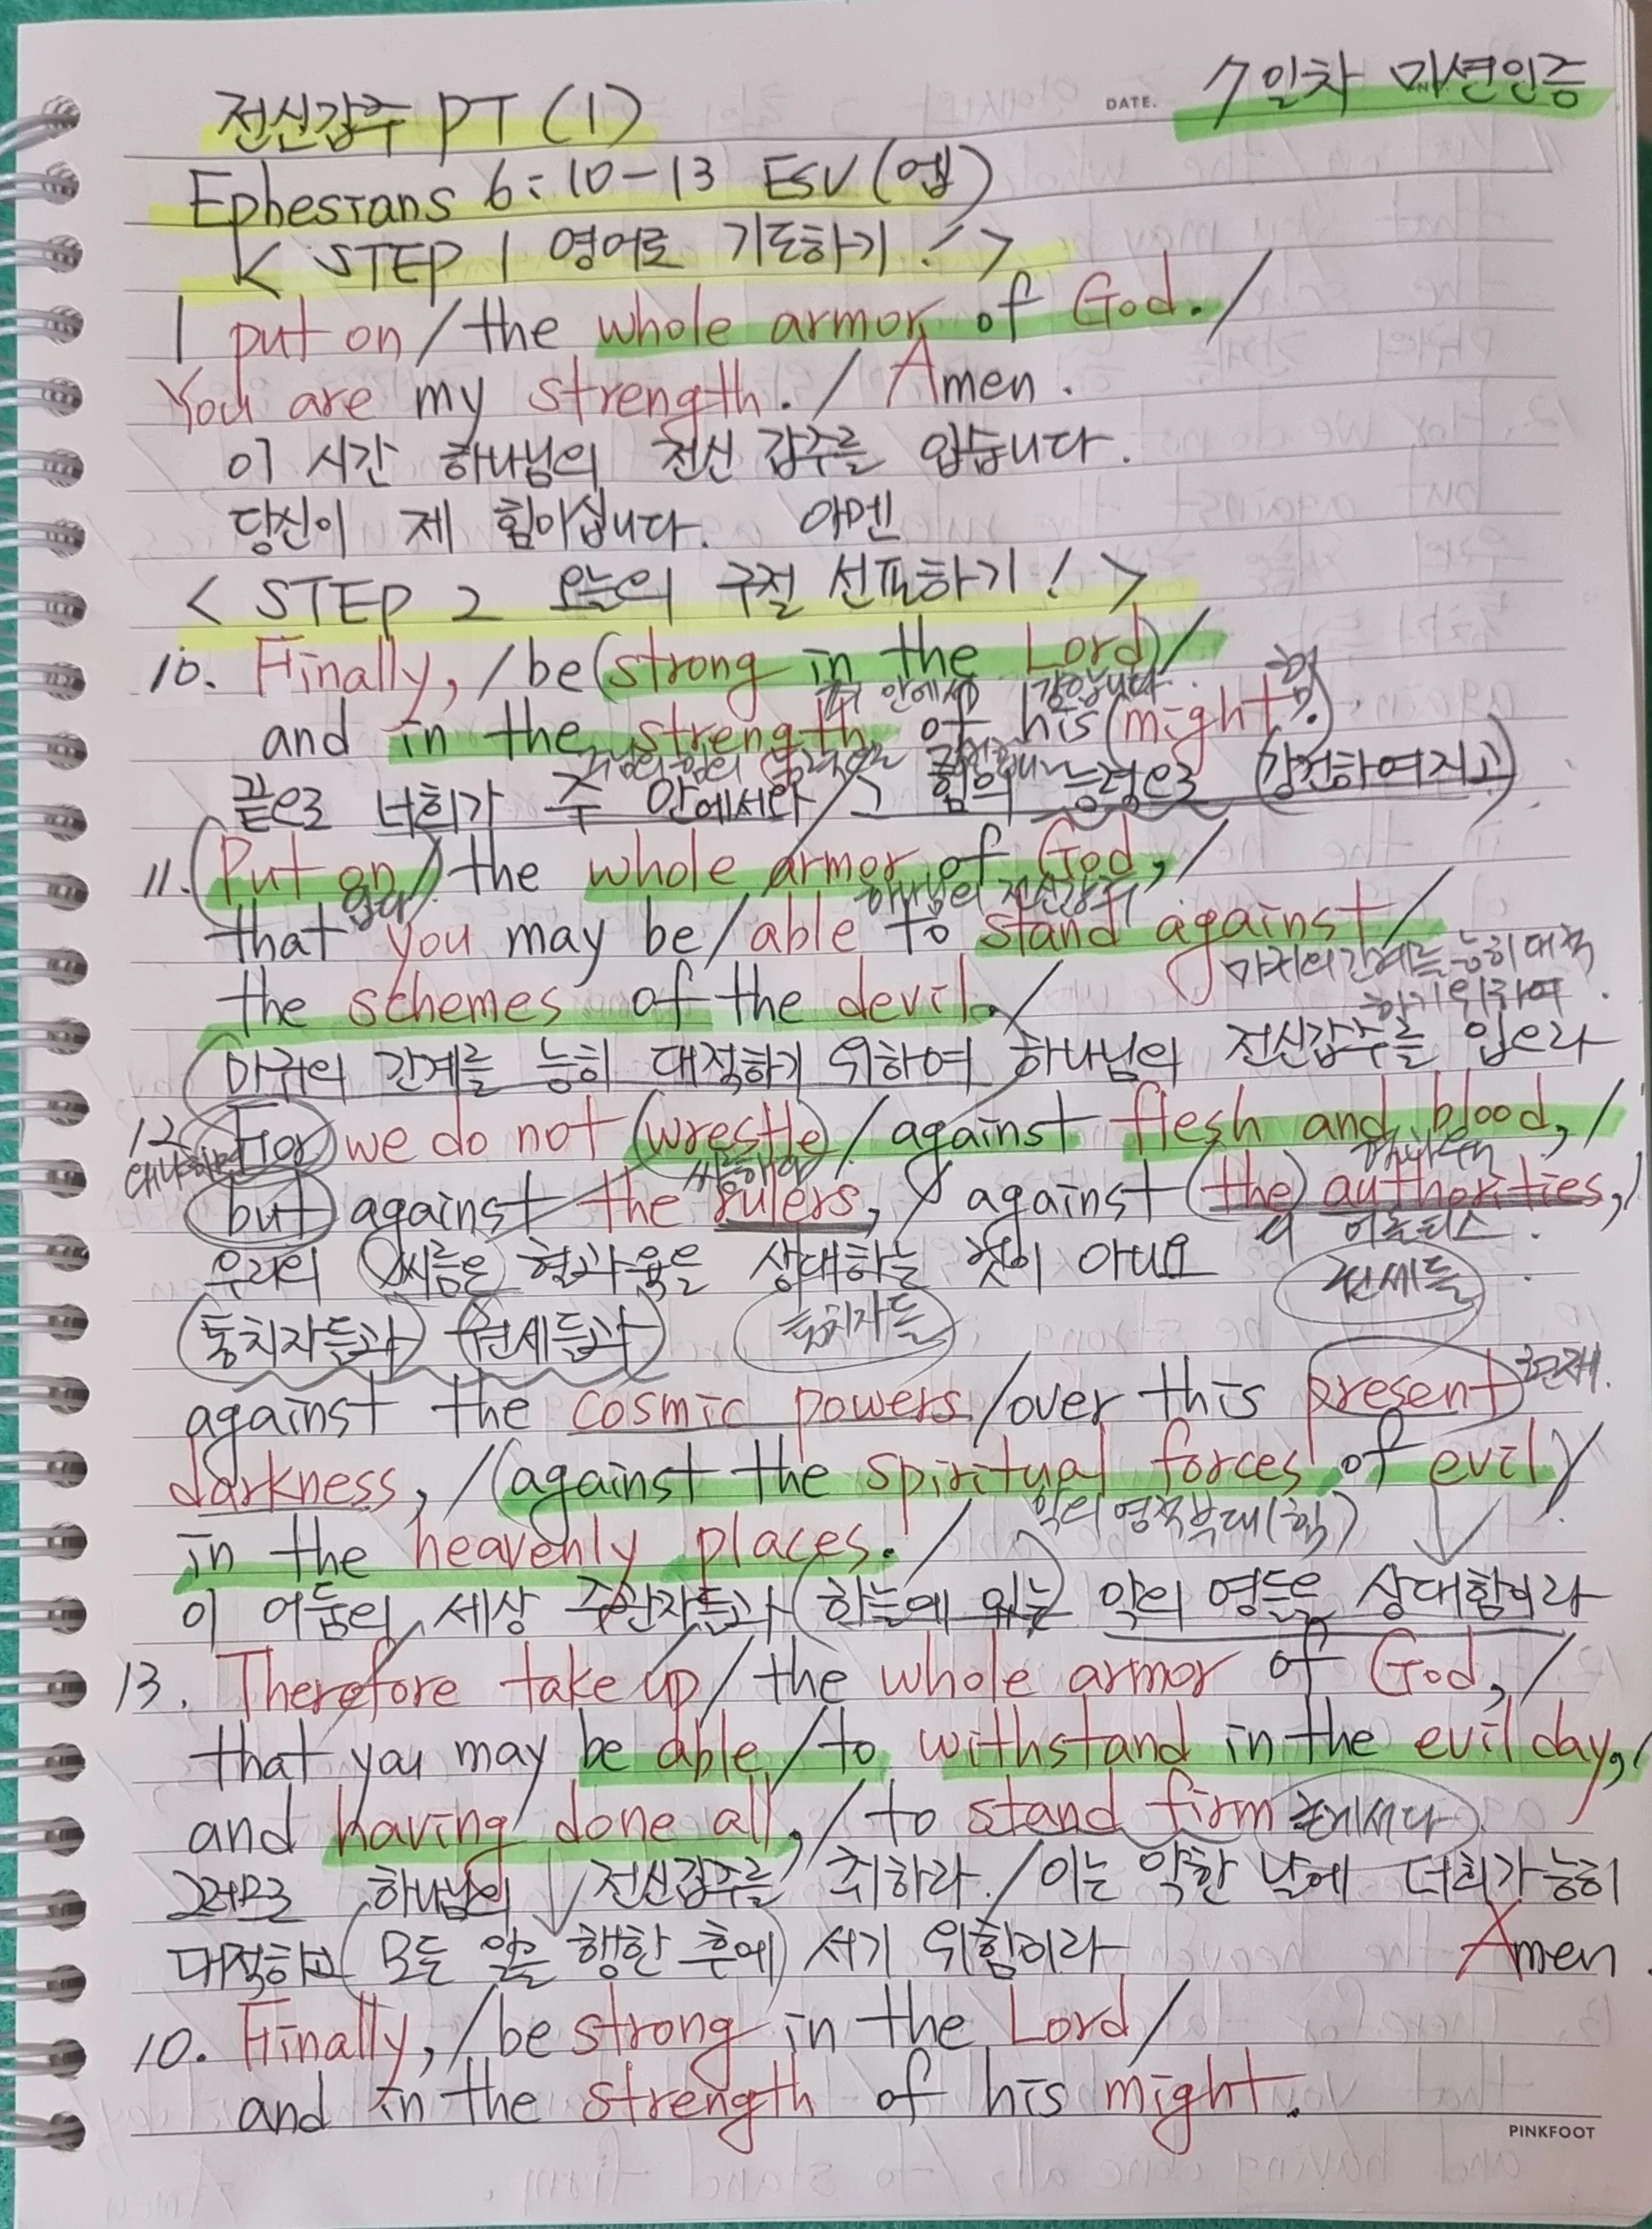 DATE. 7일차 미션인증
전신갑주 PT (1)
Ephesians 6:10-13 ESV (엡)
< STEP 1 영어로 기도하기! >
I put on / the whole armor of God. /
You are my strength. / Amen.
이 시간 하나님의 전신 갑주를 입습니다.
당신이 제 힘이십니다. 아멘
< STEP 2 오늘의 구절 선포하기! >
10. Finally, / be (strong in the Lord) /
주 안에서 강합니다. 힘
and in the strength of his (might.)
끝으로 너희가 주 안에서와 / 그 힘의 능력으로 (강건하여지고)
11. (Put on) / the whole armor of God, /
입다 하나님의 전신갑주
that you may be / able to stand against /
마귀의 간계를 능히 대적
하기 위하여.
the schemes of the devil. /
마귀의 간계를 능히 대적하기 위하여 하나님의 전신갑주를 입으라
12. For we do not (wrestle) / against flesh and blood, /
왜냐하면 씨름하다
but against the rulers, / against (the) authorities, /
디 어쏘리티스.
우리의 씨름은 혈과 육을 상대하는 것이 아니요 권세들
(통치자들과) (권세들과) 통치자들
against the cosmic powers / over this present 현재.
darkness, / (against the spiritual forces of evil) /
악의 영적 부대 (힘)
in the heavenly places. /
이 어둠의 세상 주관자들과 (하늘에 있는) 악의 영들을 상대함이라
13. Therefore take up / the whole armor of God, /
that you may be able / to withstand in the evil day, /
and having done all, / to stand firm 굳게서다.
그러므로 하나님의 전신갑주를 취하라. / 이는 악한 날에 너희가 능히
대적하고 (모든 일을 행한 후에) 서기 위함이라 Amen.
10. Finally, / be strong in the Lord /
and in the strength of his might.
PINKFOOT